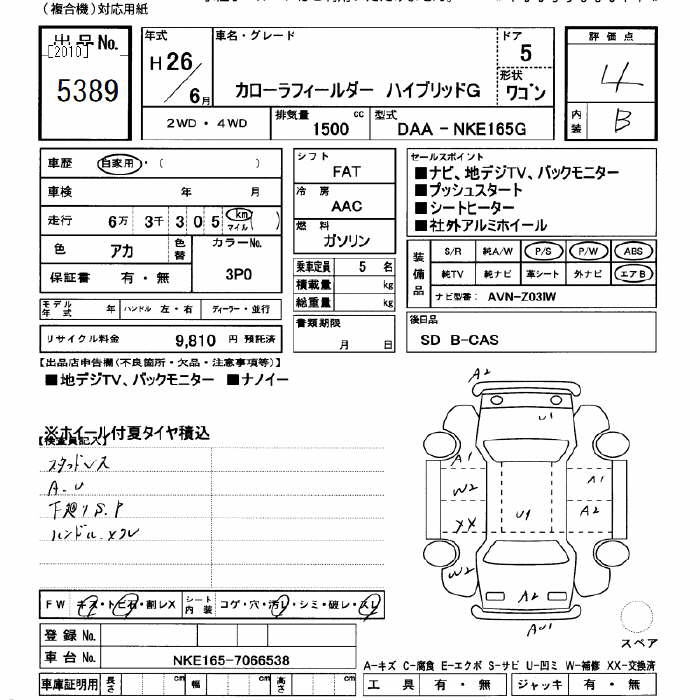 (複合機)対応用紙
出品No. [2010] 5389
年式 H26/6月
車名・グレード カローラフィールダー ハイブリッドG
ドア 5
形状 ワゴン
評価点 4
内装 B
2WD・4WD
排気量 1500 cc
型式 DAA-NKE165G
車歴 自家用・( )
車検 年 月
走行 6万 3千 3 0 5 km マイル ( )
色 アカ 色替 カラーNo. 3P0
保証書 有・無
モデル年式 年 ハンドル 左・右 ディーラー・並行
リサイクル料金 9,810 円 預託済
シフト FAT
冷房 AAC
燃料 ガソリン
乗車定員 5 名
積載量 kg
総重量 kg
書類期限 月 日
セールスポイント
■ナビ、地デジTV、バックモニター
■プッシュスタート
■シートヒーター
■社外アルミホイール
装備品 S/R 純A/W P/S P/W ABS
純TV 純ナビ 革シート 外ナビ エアB
ナビ型番: AVN-Z03IW
後日品
SD B-CAS
【出品店申告欄(不良箇所・欠品・注意事項等)】
■地デジTV、バックモニター ■ナノイー
※ホイール付夏タイヤ積込
【検査員記入】
スタッドレス
A.U
下廻りS.P
ハンドルスレ
FW キズ・トビ石・割レX シート内装 コゲ・穴・汚レ・シミ・破レ・スレ
登録No.
車台No. NKE165-7066538
車庫証明用 長さ cm 幅 cm 高さ cm
A2
U1
A1
W2
A1
XX
U1
A2
W2
A2
AU1
スペア
A-キズ C-腐食 E-エクボ S-サビ U-凹ミ W-補修 XX-交換済
工具 有・無 ジャッキ 有・無